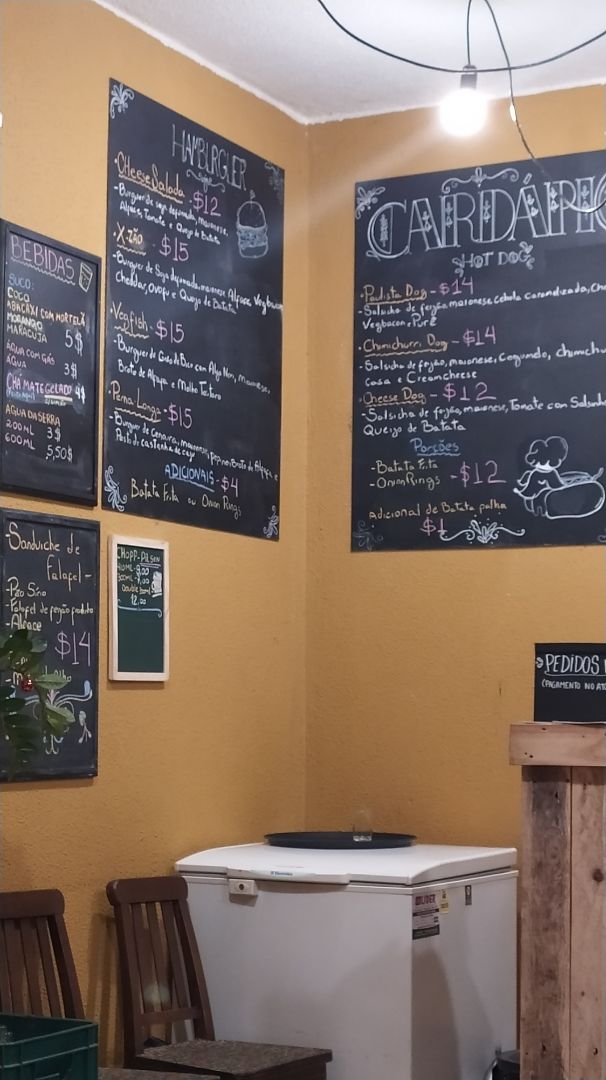 HAMBURGUER
• CHeeseSalada - $12
- Burguer de soja defumada, maionese,
Alface, Tomate e Queijo de Batata
• X-TÃO - $15
- Burguer de Soja defumada, maionese, Alface, Vegbacon
Cheddar, Ovofu e Queijo de Batata
• Vegfish - $15
- Burguer de Grão de Bico com Alga Nori, Maionese,
Broto de Alfafa e Molho Tártaro
• Perna Longa - $15
- Burguer de Cenoura, maionese, pepino, Broto de Alfafa e
Pasta de castanha de caju
ADICIONAIS - $4
Batata Frita ou Onion Rings
BEBIDAS
SUCO:
COCO
ABACAXI COM HORTELÃ
MORANGO 5$
MARACUJÁ
ÁGUA COM GÁS 3$
ÁGUA
CHÁ MATE GELADO 4$
ÁGUA DA SERRA
200 ML 3$
600 ML 5,50$
- Sanduiche de
Falafel -
- Pão Sírio
- Falafel de feijão fradinho
- Alface
$14
CHOPP-PILSEN
300ML
12,00
CARDÁPIO
HOT DOG
• Paulista Dog - $14
- Salsicha de feijão, maionese, cebola caramelizada,
Vegbacon, Purê
• Chimichurri Dog - $14
- Salsicha de feijão, maionese, Cogumelo, chimichu
casa e Creamcheese
• Cheese Dog - $12
- Salsicha de feijão, maionese, Tomate com Salsinha
Queijo de Batata
Porções
- Batata Frita
- Onion Rings - $12
Adicional de Batata palha
$1
PEDIDOS
(PAGAMENTO NO ATO
Electrolux
LIDER